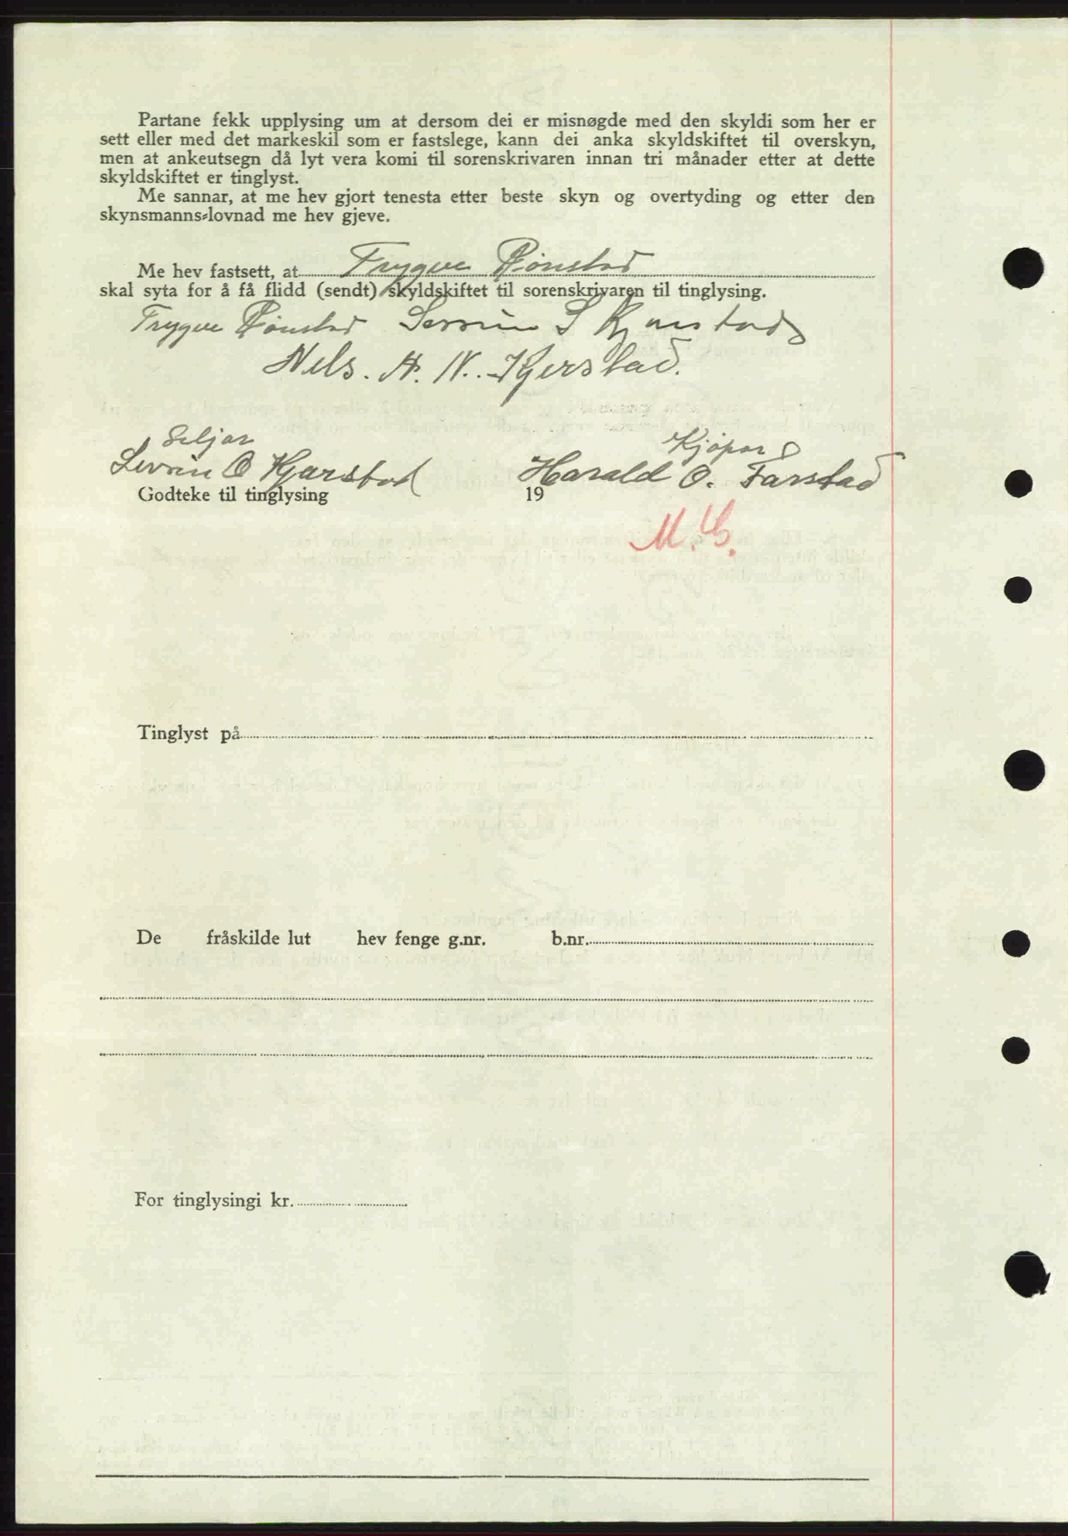 Partane fekk upplysing um at dersom dei er misnøgde med den skyldi som her er
sett eller med det markeskil som er fastslege, kann dei anka skyldskiftet til overskyn,
men at ankeutsegn då lyt vera komi til sorenskrivaren innan tri månader etter at dette
skyldskiftet er tinglyst.
Me sannar, at me hev gjort tenesta etter beste skyn og overtyding og etter den
skynsmanns-lovnad me hev gjeve.
Me hev fastsett, at Trygve Rønstad
skal syta for å få flidd (sendt) skyldskiftet til sorenskrivaren til tinglysing.
Trygve Rønstad Severin S Kjerstad
Nils. A. N. Kjerstad.
Seljar Kjøpar
Severin O Kjarstad Harald O. Farstad
Godteke til tinglysing 19
Tinglyst på
De fråskilde lut hev fenge g.nr. b.nr.
For tinglysingi kr.